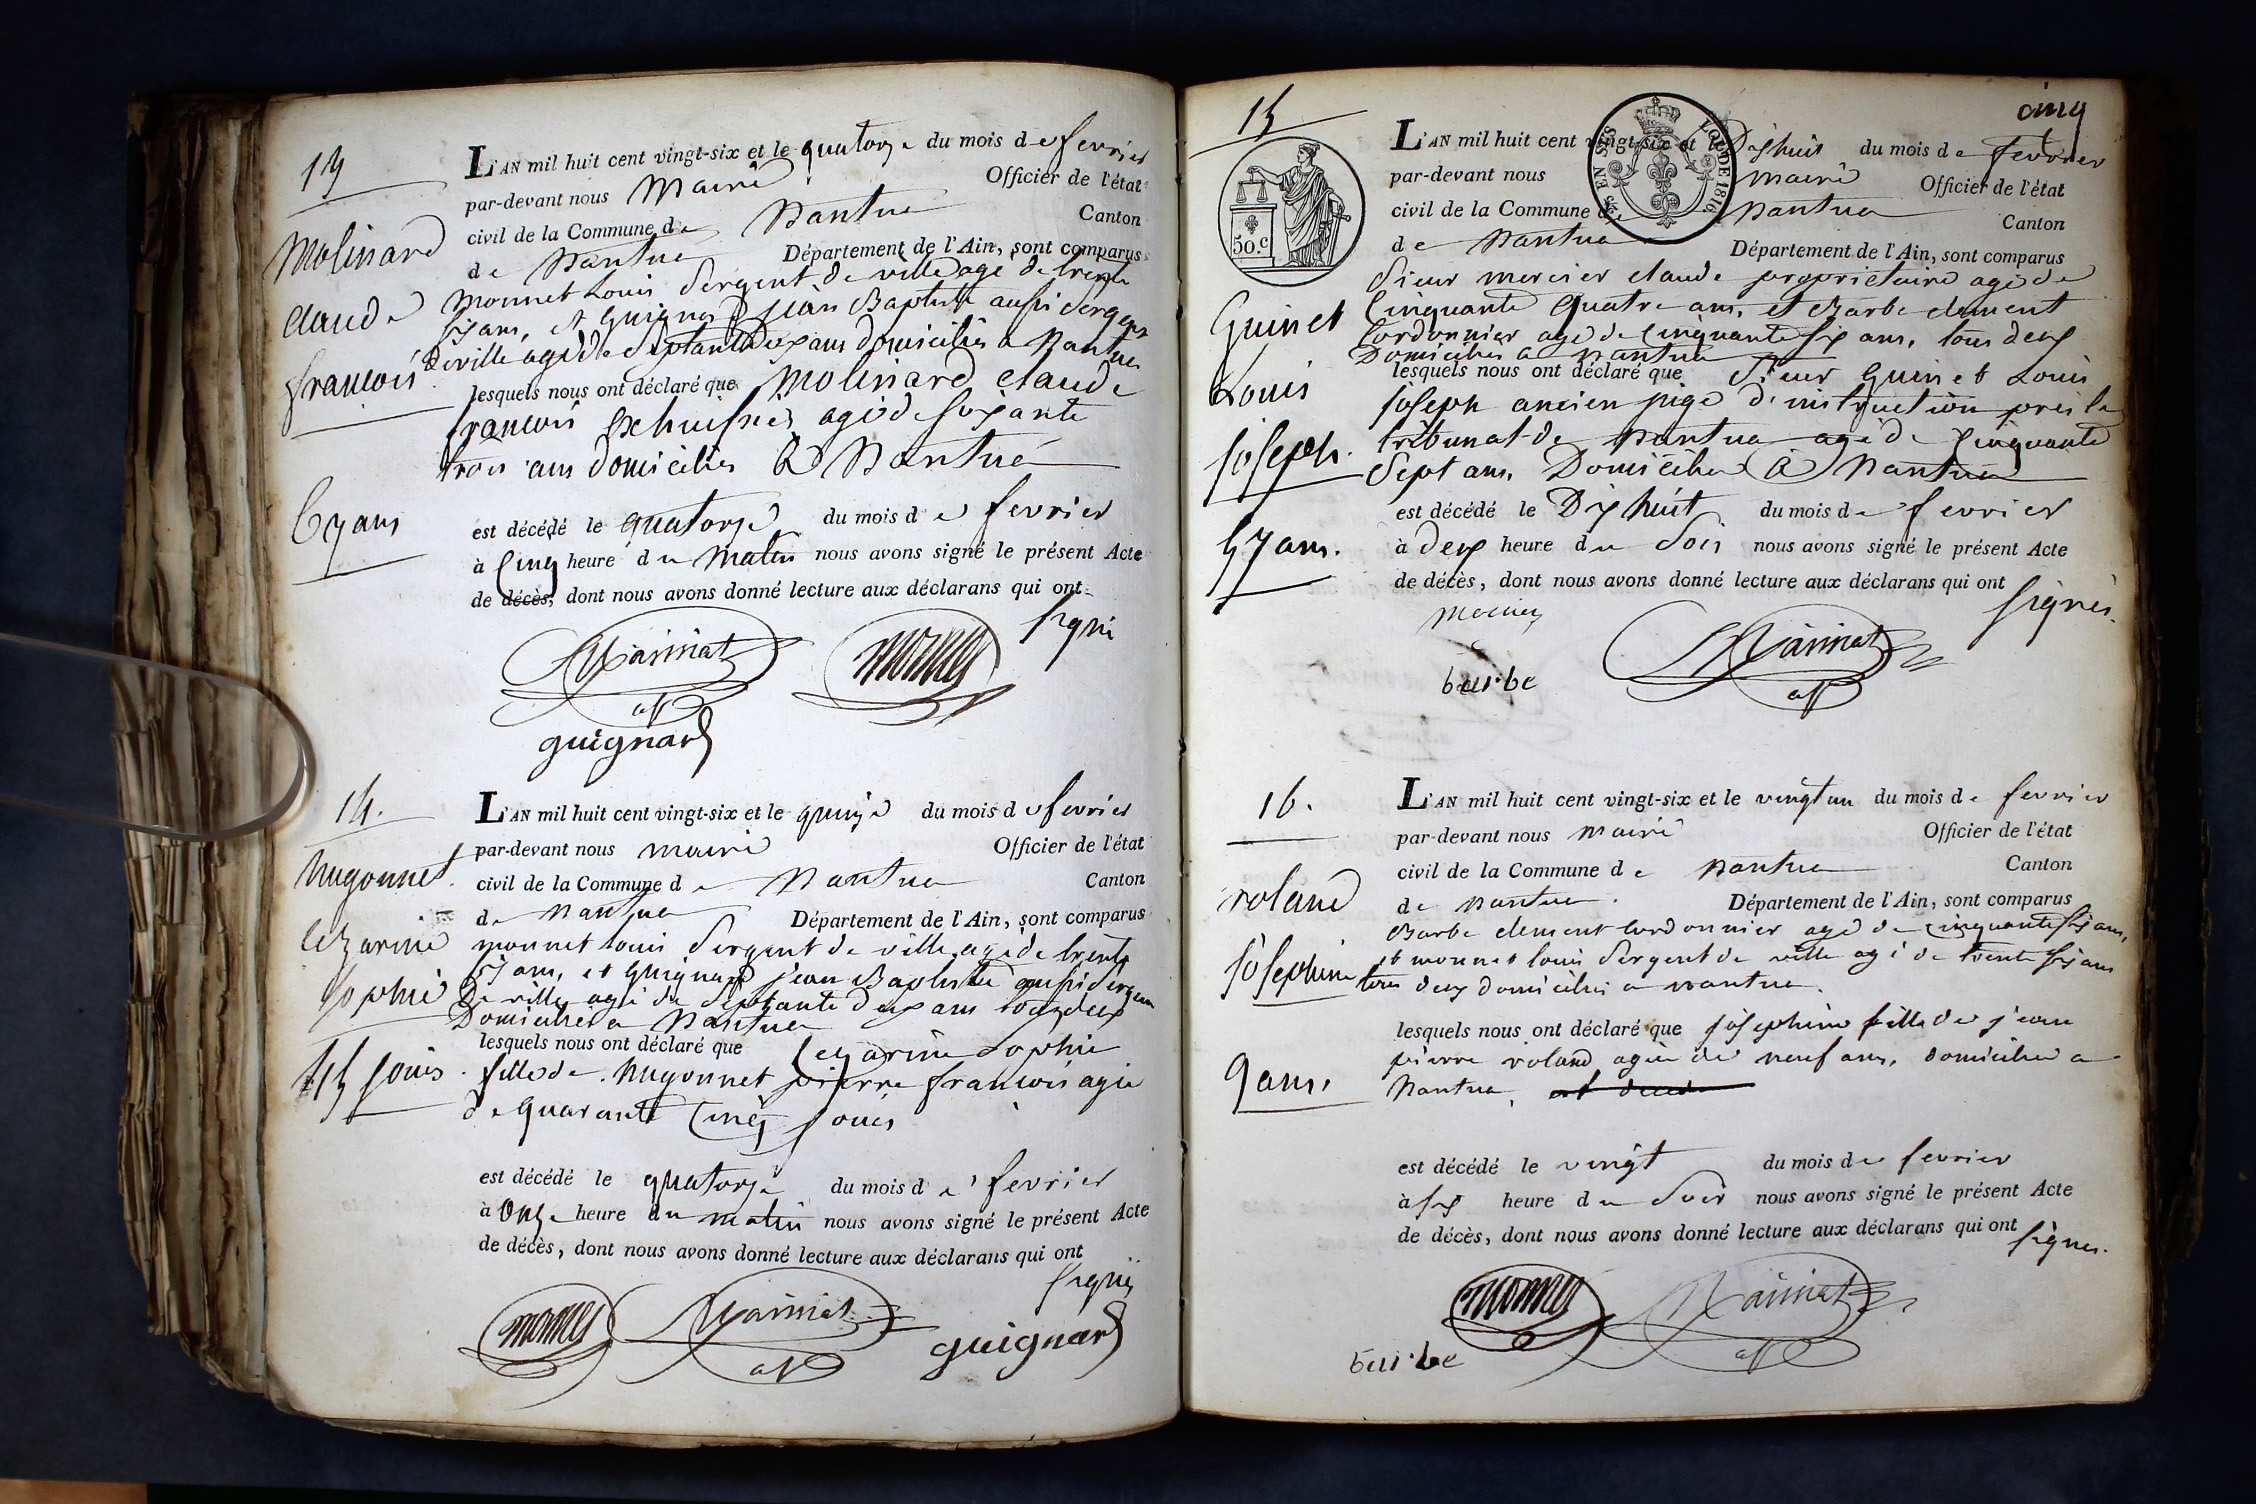 13
Molinard
claude
françois
63 ans
L'AN mil huit cent vingt-six et le quatorze du mois de fevrier
par-devant nous Maire Officier de l'état
civil de la Commune de Nantua Canton
de Nantua Département de l'Ain, sont comparus
Monnet Louis Sergent de ville agé de trente
six ans, et Guignard jean Baptiste aussi Sergent
de ville agé de Septante deux ans domiciliés a Nantua
lesquels nous ont déclaré que Molinard claude
françois Ex huissier agé de soixante
trois ans domicilié à Nantua
est décédé le quatorze du mois de fevrier
à Cinq heure du Matin nous avons signé le présent Acte
de décès, dont nous avons donné lecture aux déclarans qui ont
signé
guignard
14.
hugonnet
Cezarine
sophie
45 jours
L'AN mil huit cent vingt-six et le quinze du mois de fevrier
par-devant nous maire Officier de l'état
civil de la Commune de Nantua Canton
de Nantua Département de l'Ain, sont comparus
monnet louis Sergent de ville, agé de trente
six ans, et Guignard jean Baptiste aussi sergent
de ville agé de Septante deux ans tous deux
Domiciliés a Nantua
lesquels nous ont déclaré que Cezarine Sophie
fille de hugonnet pierre françois agée
de quarante Cinq jours
est décédé le quatorze du mois de fevrier
à Onze heure du matin nous avons signé le présent Acte
de décès, dont nous avons donné lecture aux déclarans qui ont
signé
guignard
cinq
15
50.c
EN SUS
LOI DE 1816
Guinet
Louis
joseph.
57 ans.
L'AN mil huit cent vingt-six et le Dixhuit du mois de fevrier
par-devant nous maire Officier de l'état
civil de la Commune de Nantua Canton
de Nantua Département de l'Ain, sont comparus
Sieur mercier claude proprietaire agé de
Cinquante quatre ans, et Barbe clement
Cordonnier agé de Cinquante six ans, tous deux
Domiciliés a nantua
lesquels nous ont déclaré que Sieur Guinet Louis
joseph ancien juge d'instruction près le
tribunal de Nantua agé de Cinquante
Sept ans, Domicilié à Nantua
est décédé le Dix huit du mois de fevrier
à deux heure du Soir nous avons signé le présent Acte
de décès, dont nous avons donné lecture aux déclarans qui ont
signés.
barbe
16.
roland
josephine
9 ans,
L'AN mil huit cent vingt-six et le vingt un du mois de fevrier
par-devant nous maire Officier de l'état
civil de la Commune de Nantua Canton
de nantua. Département de l'Ain, sont comparus
Barbe clement cordonnier agé de cinquante six ans,
et monnet louis Sergent de ville agé de trente six ans
tous deux domiciliés a nantua.
lesquels nous ont déclaré que josephine fille de jean
pierre roland agée de neuf ans, domiciliée a
Nantua,
est décédé le vingt du mois de fevrier
à six heure du Soir nous avons signé le présent Acte
de décès, dont nous avons donné lecture aux déclarans qui ont
signés.
barbe